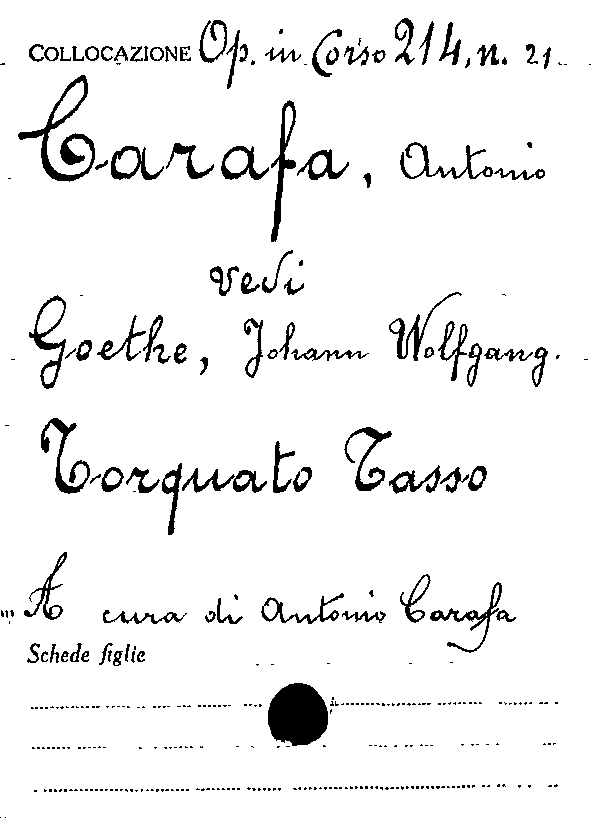 COLLOCAZIONE Op. in Corso 214, n. 21
Carafa, Antonio
vedi
Goethe, Johann Wolfgang.
Torquato Tasso
A cura di Antonio Carafa
Schede figlie